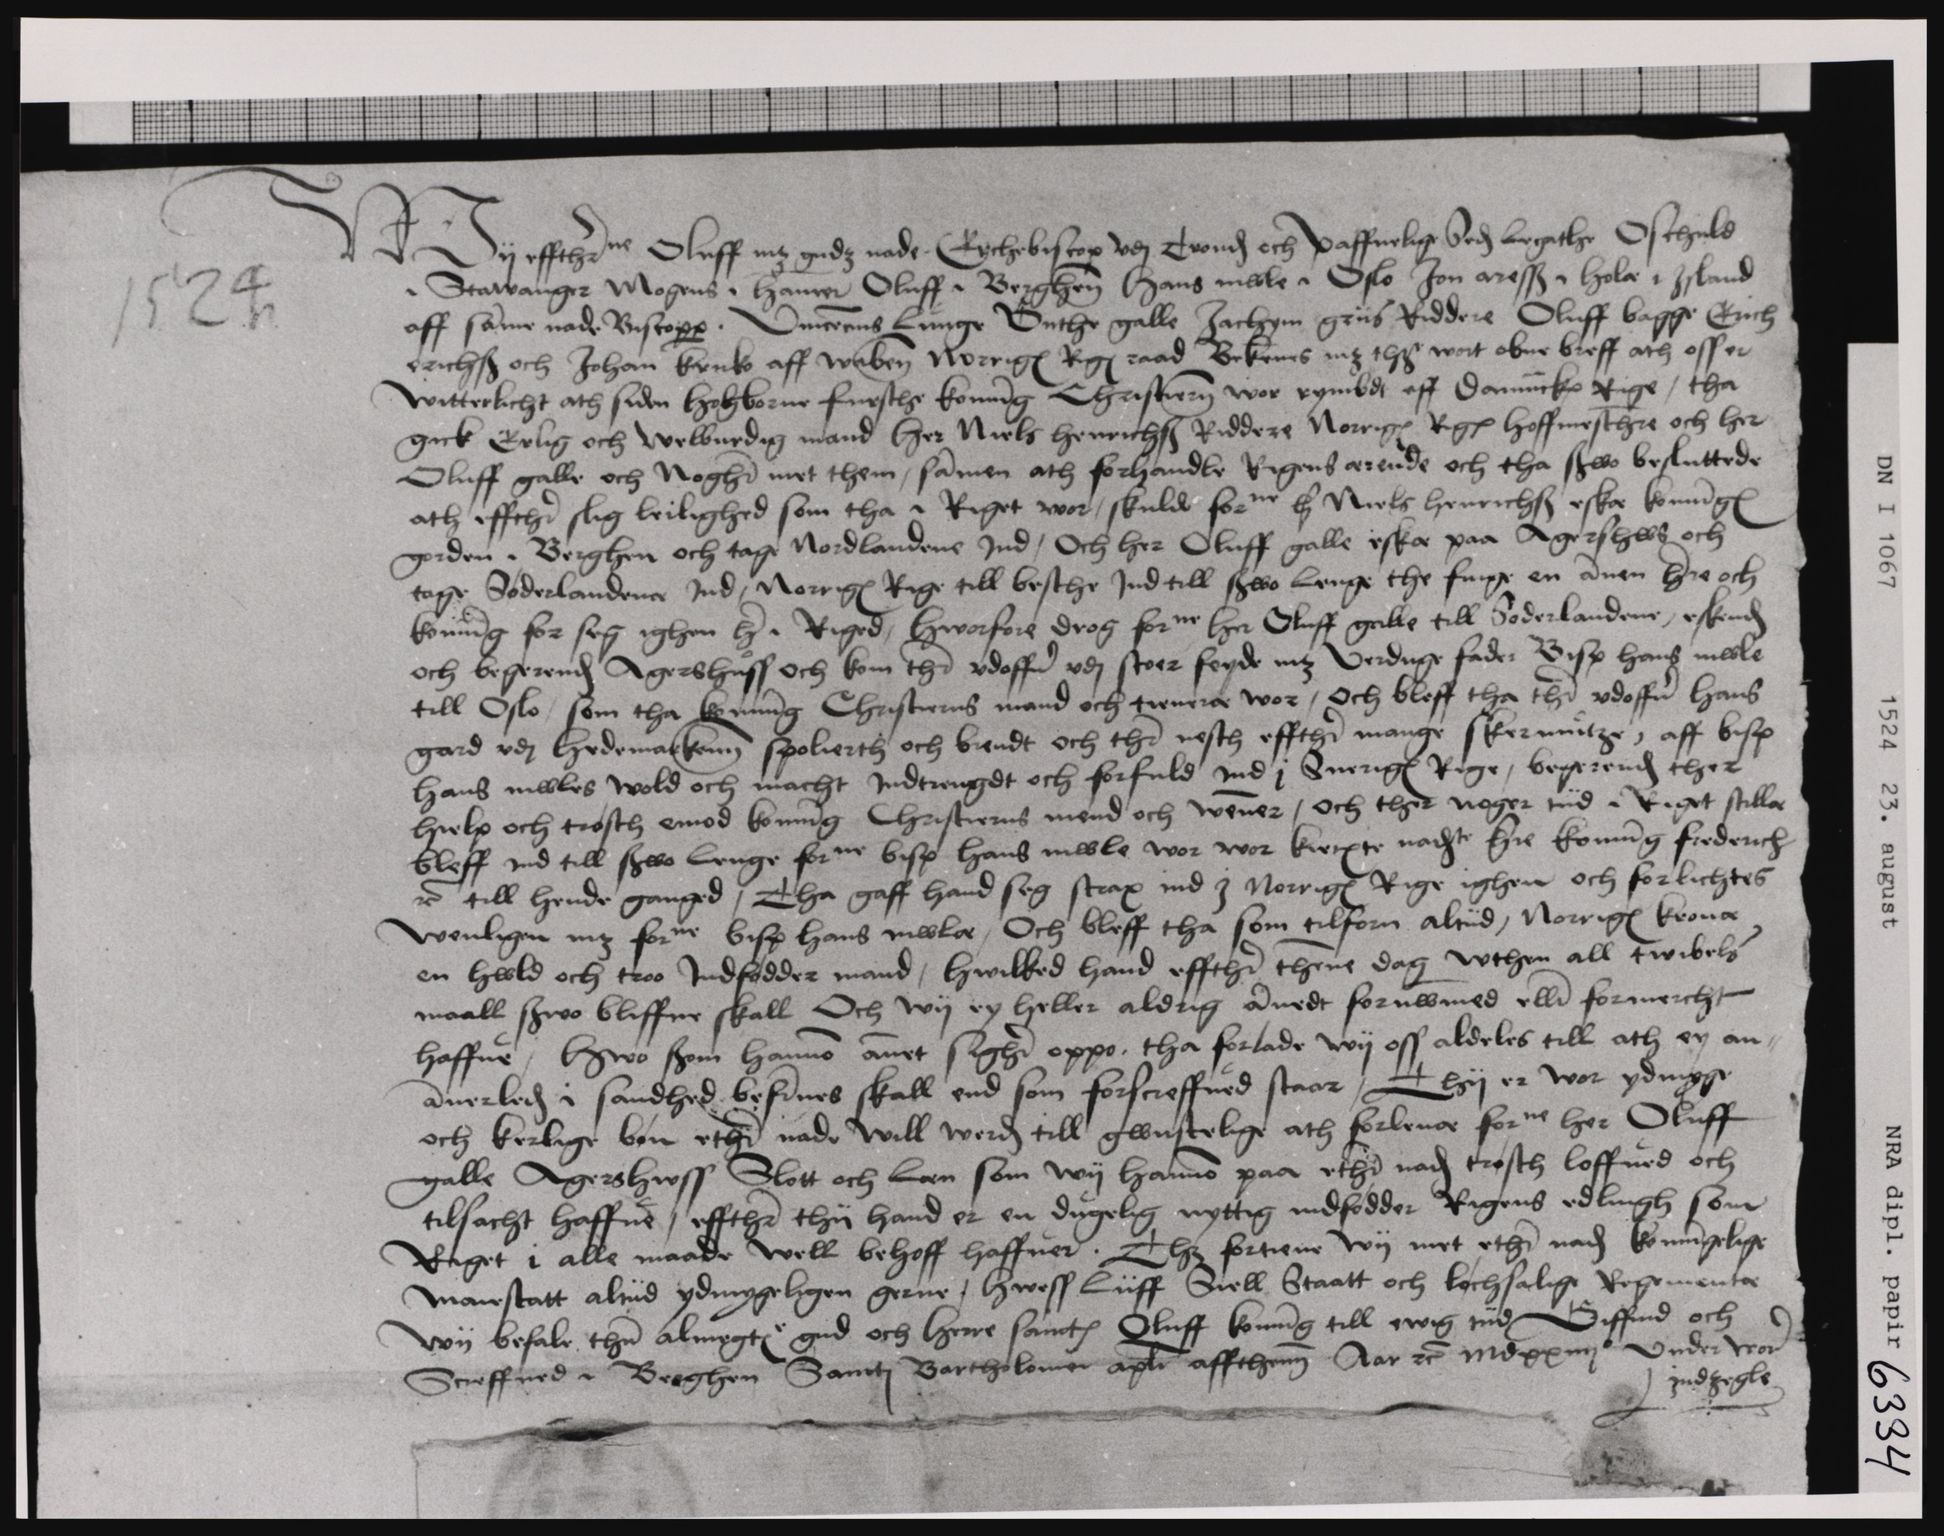 1524
Wij effthrne Oluff mz gudz nade Erchebiscop vdj Trondh och Paffuelige Sedz Legathe Oschuld
i Stawanger Mogens i Hamer Oluff i Berghen Hans mwle i Oslo Jon aressz i Holæ i Jsland
aff same nade Biscopp. Vincens Lunge Guthe galle Jachym griis Riddere Oluff bagge Erich
erichsz och Johan krwko aff waben Norriges Riges raad Bekenes mz thz wort obne breff ath oss er
witterlicht ath siden Hogborne fursthe koning Christiern wor rymbdt aff Danmarks Rige, tha
gick Erlig och welburdig mand Her Niels Henrichsz Riddere Norriges Riges Hoffmesthre och her
Oluff galle och Noghr met them, samen ath forhandle Rigens ærende och tha szwo besluttede
ath effthr slig leilighed som tha i Riget wor, skulde forne Hr Niels Henrichsz eske konings
gorden i Berghen och tage Nordlandene Jnd, Och her Oluff galle eske paa Agershws och
tage Søderlandene Jnd, Norriges Rige till besthe Jnd till szwo lenge the finge en anen hre och
koning for seg ighen her i Riged, Hworfore drog forne her Oluff galle till Søderlandene, eskendes
och begerendes Agershuss och kom thr vdoffuer vdj stoer feyde mz Verduge fader Bisp hans mwle
till Oslo, som tha koning Christierns mand och tienere wor, och bleff tha thr vdoffuer hans
gard vdj Hedemarkenn spolierth och brendt och thr nesth effthr mange skermutze, aff bisp
Hans mwles wold och macht Jndtrengdt och forfuld Jnd j Sueriges Rige, begerendes ther
hielp och trøsth emod koning Christierns mend och wener, och ther noger tiid i Riget stille
bleff Jnd till szwo lenge forne bisp hans mwle wor wor kierxte nadste Hre koning frederich
rc till hende ganged, Tha gaff hand seg strax ind j Norriges Rige ighen och forlichtes
wenligen mz forne bisp hans mwle, Och bleff tha som tilforn altiid, Norriges kronæ
en hwld och troo Jndfødder mand, Hwilked hand effthr thene dag wthen all twibels
maall szwo bliffue skall Och wij ey heller aldrig anedt fornwmed elli formercht
haffue, Hwo szom hanno anet sighr oppo. tha forlade wij oss aldeles till ath ey an„
anerledes i sandhed befines skall end som forscreffued staar, Thij er wor ydmyge
och kerlige bøn ethr nade will werdes till gwnstelige ath forlene forne her Oluff
galle Agershwss Slott och Læn som wij hanno paa ethr nades trøsth loffued och
tilsacht haffue, effthr thij hand er en dugelig nyttig indfødder Rigens edlingh som
Riget i alle maade well behoff haffuer. Thz fortiene wij met ethr nades koningelige
Maiestatt altiid ydmygeligen gerne, Hwess Liiff Siell Staatt och lochsalige Regementæ
wij befale then almegtste gud och Herre sancte Oluff koning till ewig tiid Giffuid och
Screffued i Berghen Sancti Bartholomei apli affthenn Aar rc mdxxiiijo Vnder wor
indzegle
DN I 1067 1524 23. august NRA dipl. papir 6394